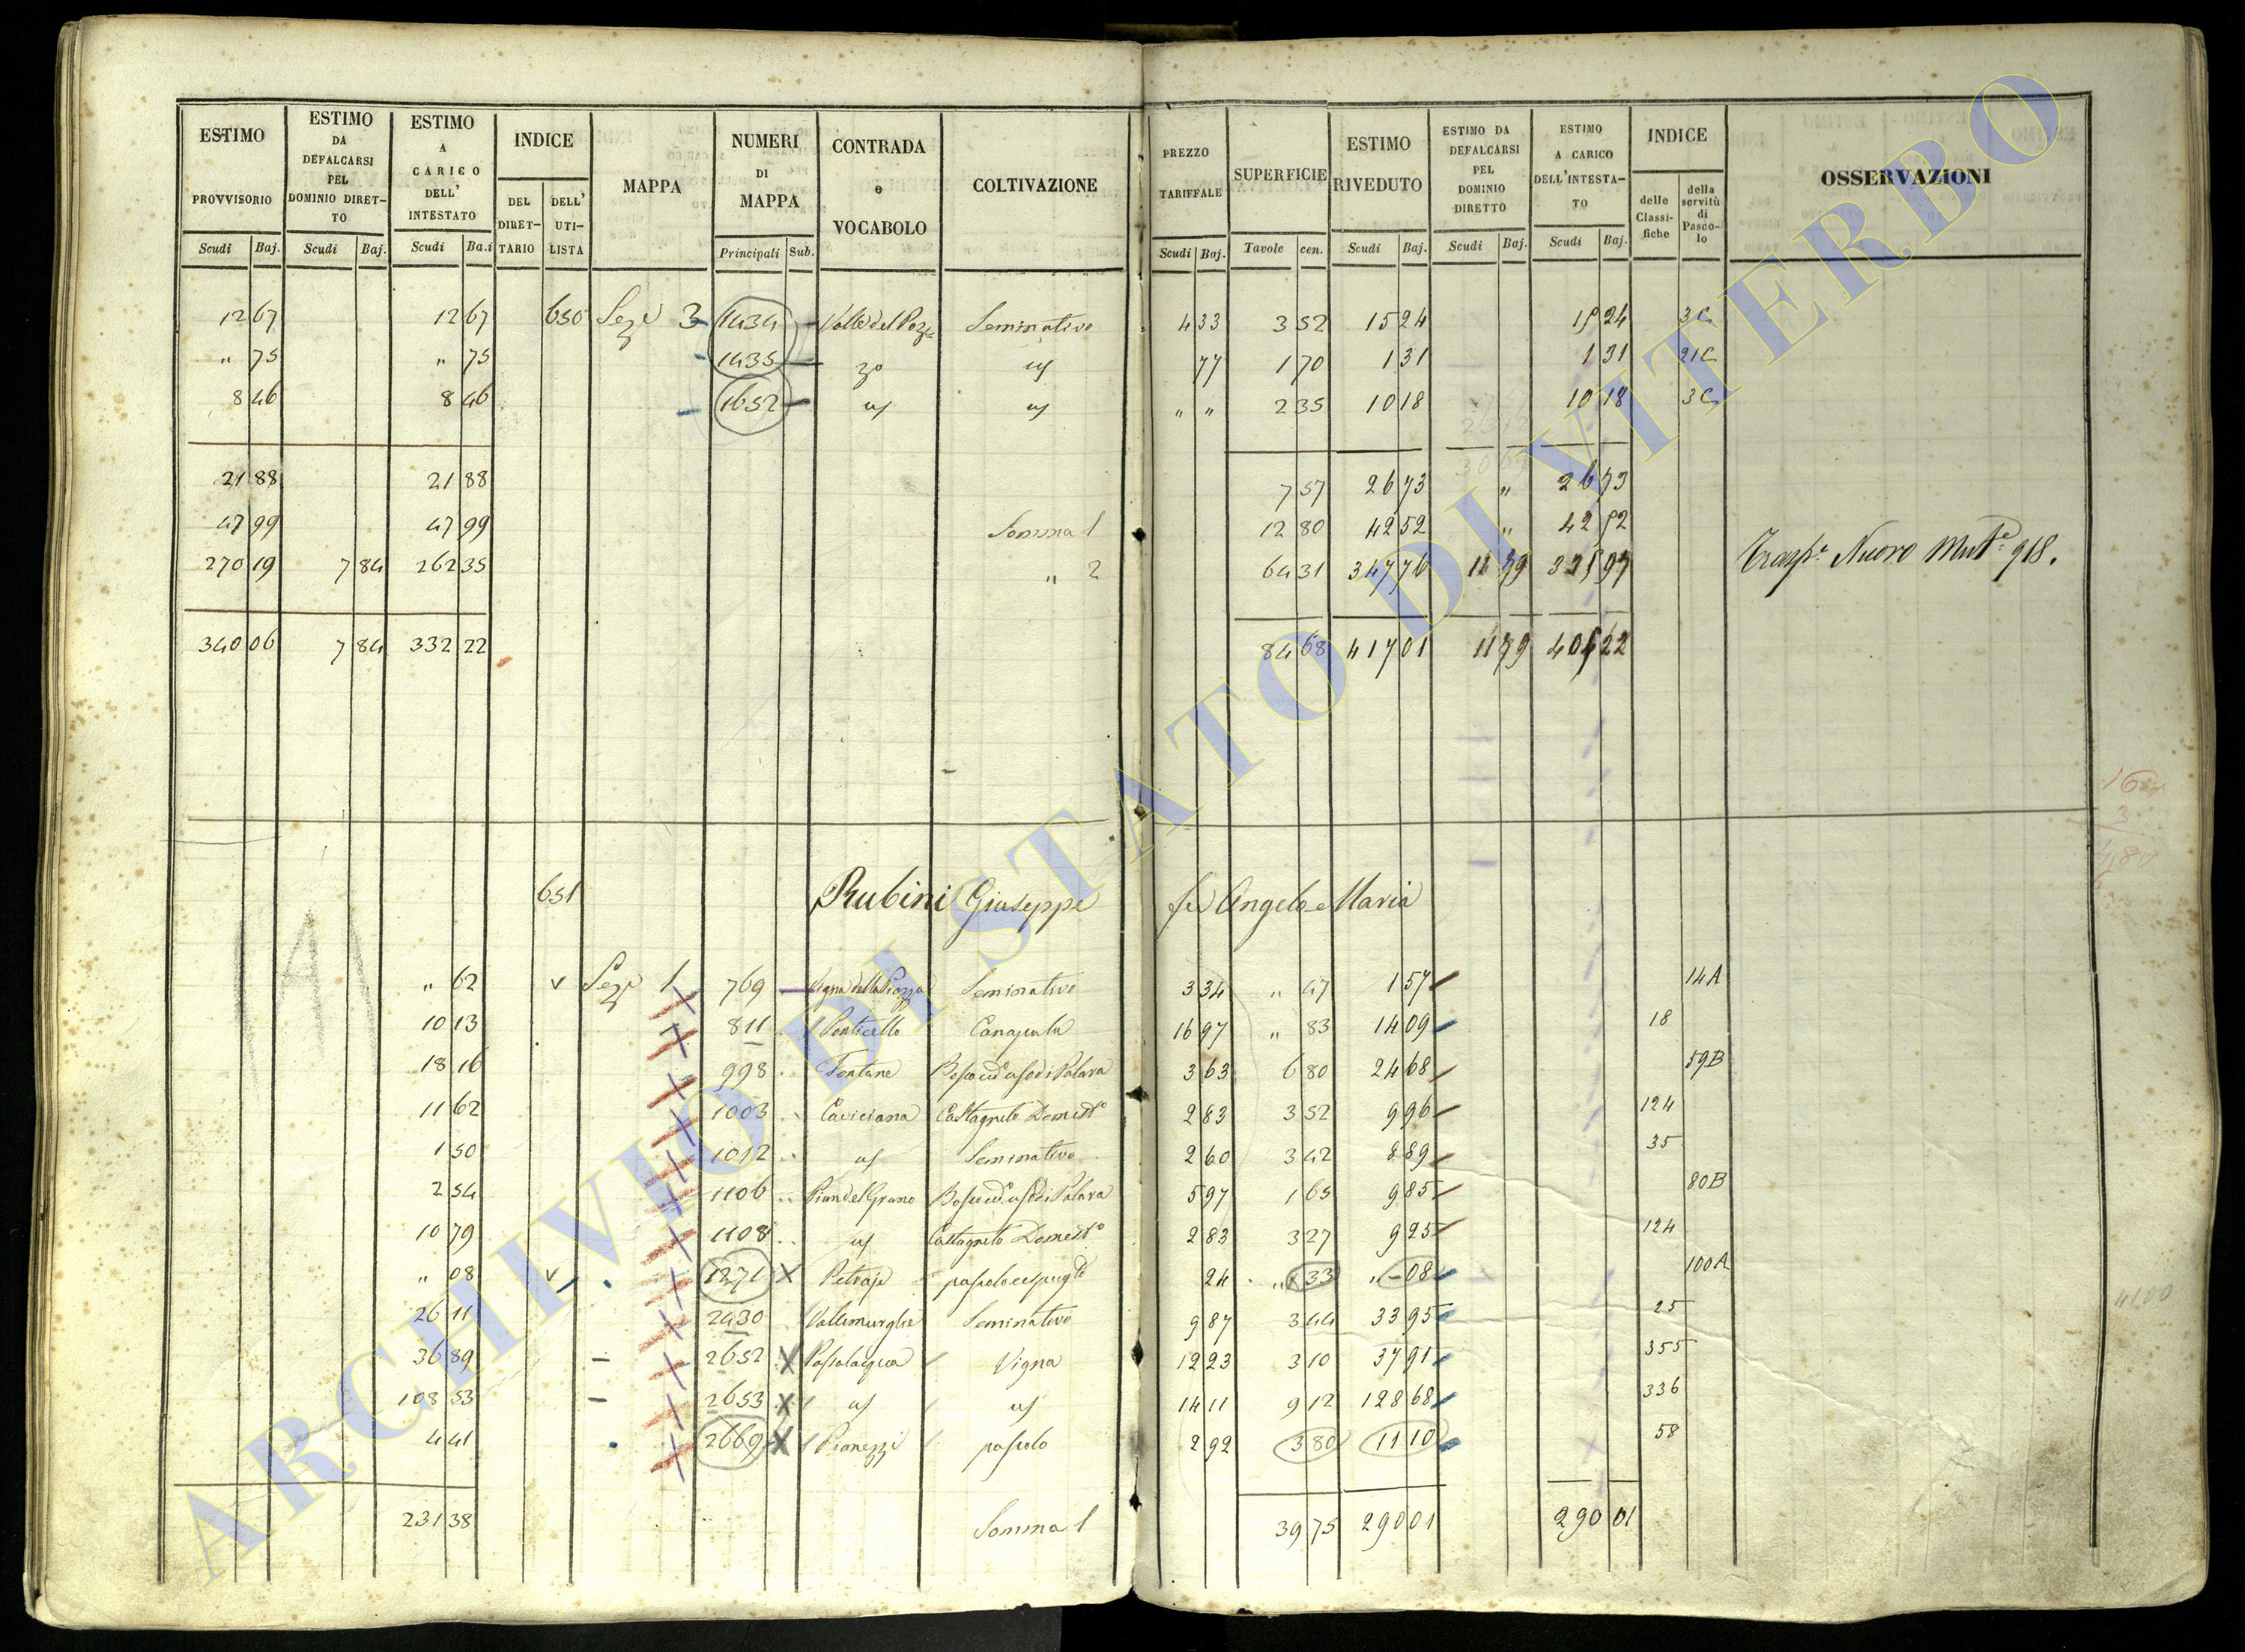 ESTIMO PROVVISORIO Scudi Baj. | ESTIMO DA DEFALCARSI PEL DOMINIO DIRETTO Scudi Baj. | ESTIMO A CARICO DELL' INTESTATO Scudi Ba.i | INDICE DEL DIRETTARIO DELL' UTILISTA | MAPPA | NUMERI DI MAPPA Principali Sub. | CONTRADA e VOCABOLO | COLTIVAZIONE | PREZZO TARIFFALE Scudi Baj. | SUPERFICIE Tavole cen. | ESTIMO RIVEDUTO Scudi Baj. | ESTIMO DA DEFALCARSI PEL DOMINIO DIRETTO Scudi Baj. | ESTIMO A CARICO DELL'INTESTATO Scudi Baj. | INDICE delle Classifiche della servitù di Pascolo | OSSERVAZIONI
12 67 12 67 650 Seze 3 1434 Valle del Pozzo Seminativo 4 33 3 52 15 24 15 24 3C
" 75 " 75 1435 us 77 1 70 1 31 1 31 21C
8 46 8 46 1652 us us " " 2 35 10 18 10 18 3C
21 88 21 88 7 57 26 73 " 26 73
47 99 47 99 Somma 1 12 80 42 52 " 42 52
270 19 7 84 262 35 " 2 64 31 347 76 11 79 335 97 Trasp.e Nuovo Mut.e 918.
340 06 7 84 332 22 84 68 417 01 11 79 405 22
651 Rubini Giuseppe fu Angelo Maria
" 62 v Seze 1 769 Vigna della Piazza Seminativo 3 34 " 47 1 57 14A
10 13 811 Ponticello Canapula 16 97 " 83 14 09 18
18 16 998 Fontane 3 63 6 80 24 68 59B
11 62 1003 Caviciana Castagneto Domest.o 2 83 3 52 9 96 124
1 50 1012 us Seminativo 2 60 3 42 8 89 35
2 54 1106 Pian del Grano 5 97 1 65 9 85 80B
10 79 1108 us Castagneto Domest.o 2 83 3 27 9 25 124
" 08 v 1271 Petraje 24 " 33 " 08 100A
26 11 2430 Seminativo 9 87 3 44 33 95 25
36 89 2652 Passalacqua Vigna 12 23 3 10 37 91 355
108 53 2653 us us 14 11 9 12 128 68 336
4 41 2669 Pianezzi pascolo 2 92 3 80 11 10 58
231 38 Somma 1 39 75 290 01 290 01
ARCHIVIO DI STATO DI VITERBO